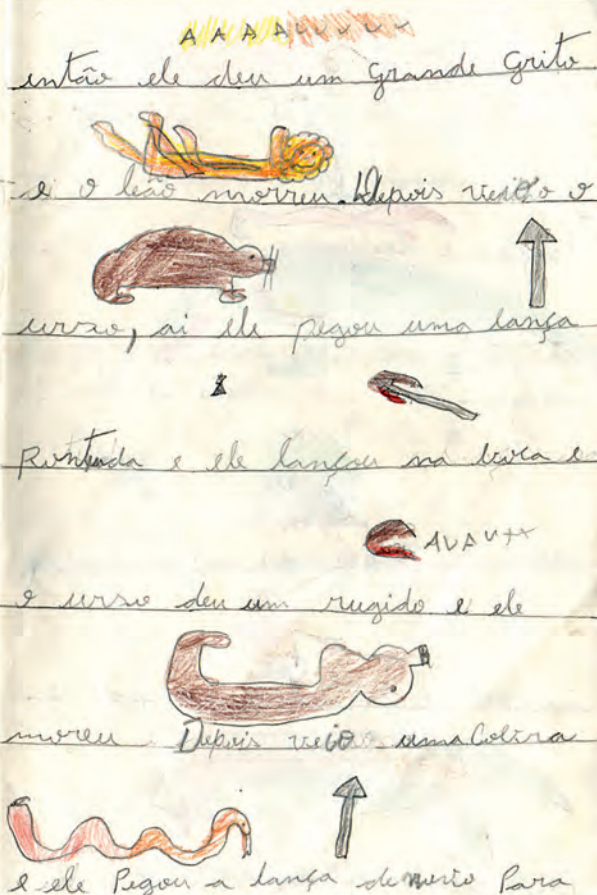 A A A A U U U U U
então ele deu um grande Grito
e o leão morreu. Depois veio o
urso, ai ele pegou uma lança
Pontuda e ele lançou na boca e
AUAU
o urso deu um rugido e ele
moreu Depois veio uma Cobra
e ele Pegou a lança de Para